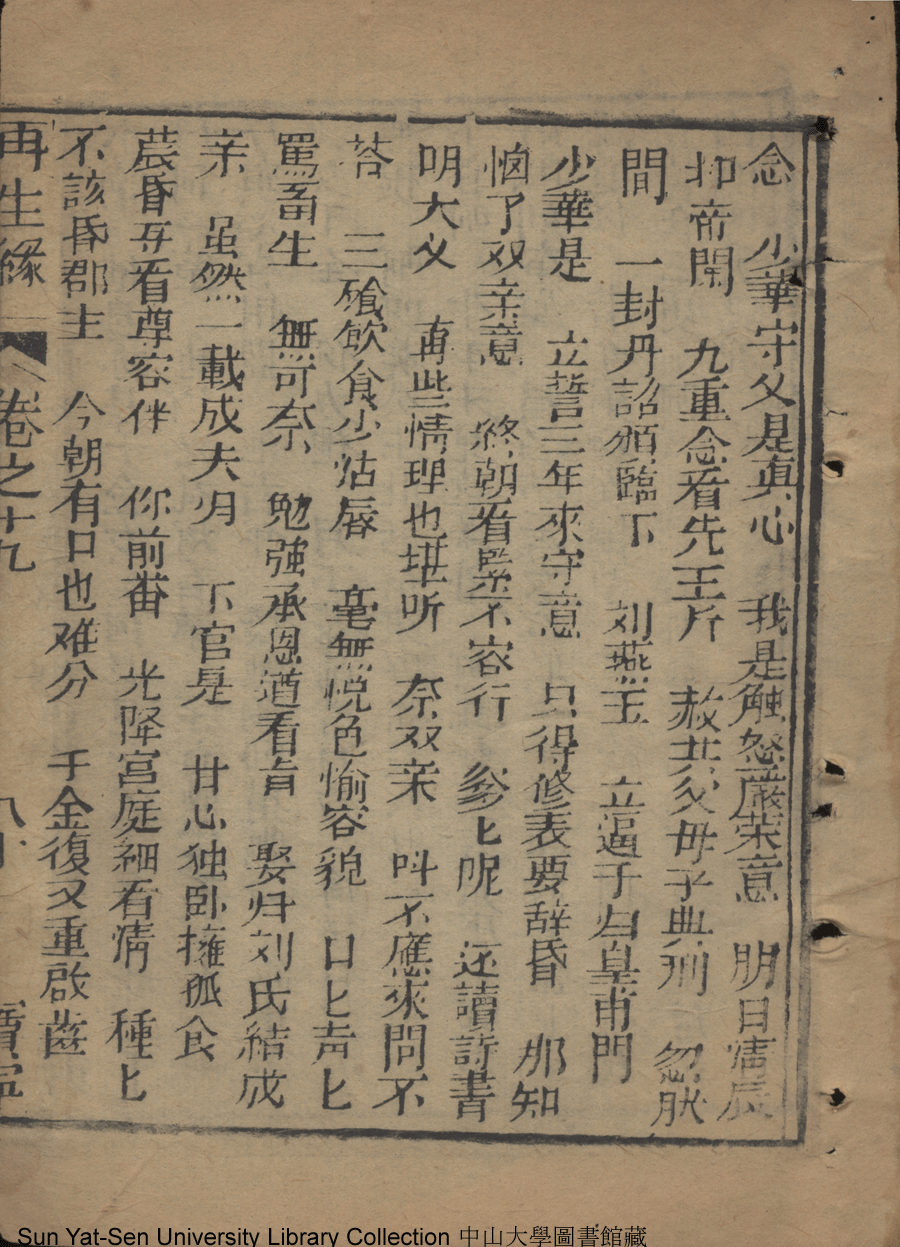 念 少華守父是真心 我是触怒嚴荣意 明日清辰
叩帝閽 九重念看先王斤 赦其父毋予典刑 忽肰
間 一封丹詔頒臨下 刘燕玉 立逼于㱕皇甫門
少華是 立誓三年來守意 只得修表要辞昏 那知
恼了双亲意 終朝看 不容行 爹匕呢 还讀詩書
明大父 再些情理也堪听 奈双亲 呌不應來問不
荅 三飱飲食少怗唇 毫無悅色愉容貌 口匕声匕
罵畜生 無可奈 勉強承恩遒看肯 娶归刘氏結成
亲 虽然一載成夫妇 下官是 甘心独卧擁孤衾
晨昏再看尊容伴 你前番 光降宫庭細看情 種匕
不該昏郡主 今朝有口也难分 千金復又重啟齒
再生緣 卷之十九 八 寶寍
Sun Yat-Sen University Library Collection 中山大學圖書館藏